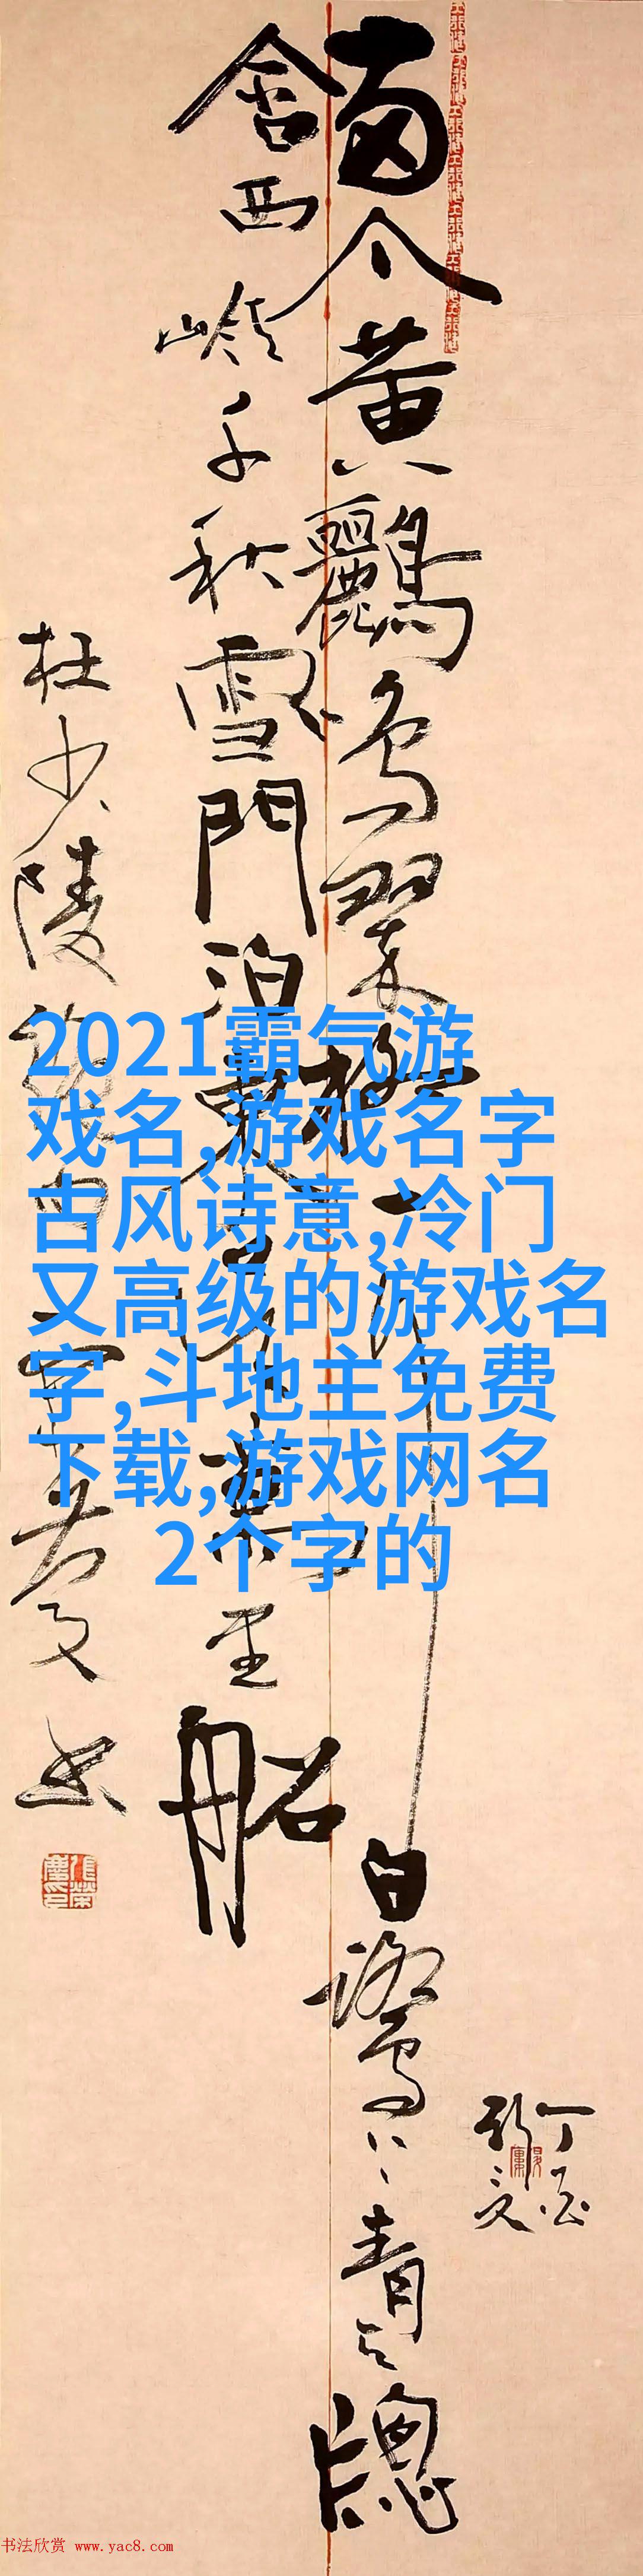 兩个黃鸝鳴翠柳一行白鷺上青天牕
含西嶺千秋雪門泊東吳萬里船
杜少陵
2021霸气游
戏名,游戏名字
古风诗意,冷门
又高级的游戏名
字,斗地主免费
下载,游戏网名
2个字的
丁酉
书法欣赏 www.yac8.com